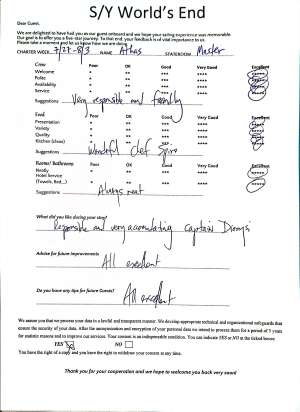 S/Y World's End
Dear Guest,
We are delighted to have had you as our guest onboard and we hope your sailing experience was memorable
Our goal is to offer you a five-star journey. To that end, your feedback is of vital importance to us.
Please take a moment and let us know how are we doing.
CHARTER WEEK 7/27-8/3 NAME Athas STATEROOM Master
Crew Poor OK Good Very Good Excellent
Welcome * ** *** **** *****
Polite * ** *** **** *****
Availability * ** *** **** *****
Service * ** *** **** *****
Suggestions Very responsible and friendly
Food Poor OK Good Very Good Excellent
Presentation * ** *** **** *****
Variety * ** *** **** *****
Quality * ** *** **** *****
Kitchen (clean) * ** *** **** *****
Suggestions Wonderful Chef Spiro
Rooms/ Bathrooms Poor OK Good Very Good Excellent
Neatly * ** *** **** *****
Hotel Service
(Towels, Bed...) * ** *** **** *****
Suggestions Always neat
What did you like during your stay?
Responsible and very accomodating captain Dionysi
Advice for future improvements
All excellent
Do you have any tips for future Guests?
All excellent
We assure you that we process your data in a lawful and transparent manner. We develop appropriate technical and organizational safeguards that
ensure the security of your data. After the anonymization and encryption of your personal data we intend to process them for a period of 5 years
for statistic reasons and to improve our services. Your consent is an indispensable condition. You can indicate YES or NO at the linked boxes:
YES NO
You have the right of a copy and you have the right to withdraw your consent at any time.
Thank you for your cooperation and we hope to welcome you back very soon!